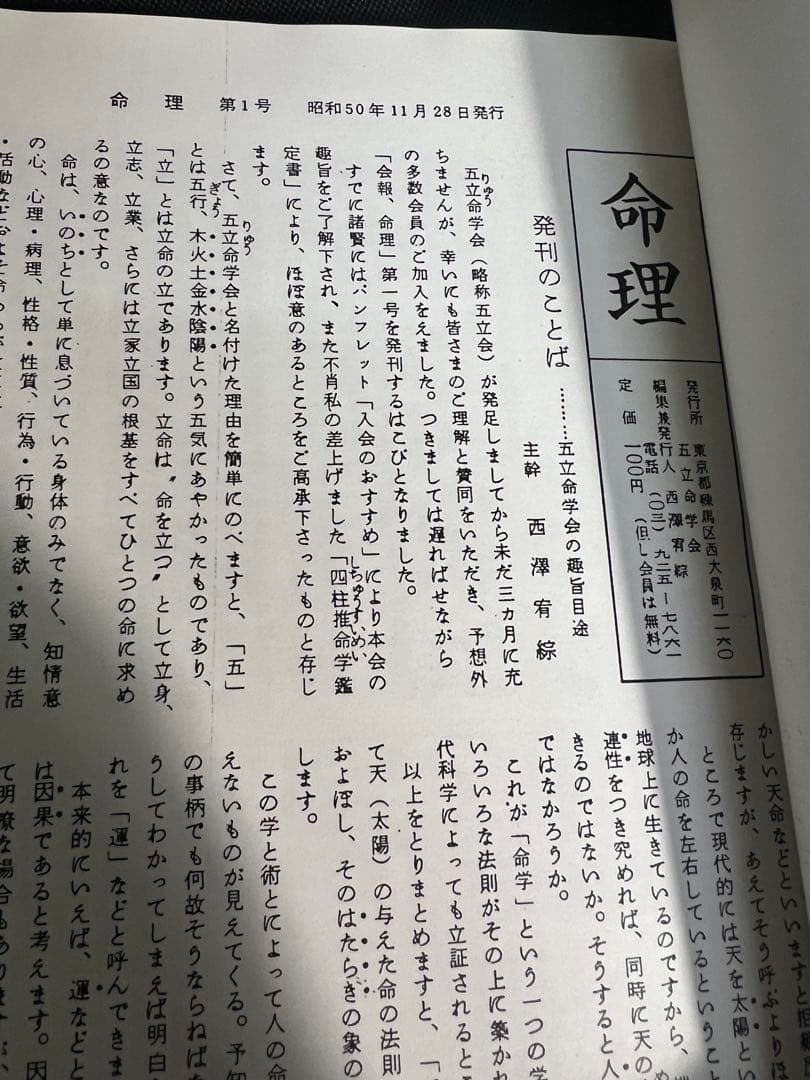 命理 第1号 昭和50年11月28日発行
命理
発行所 東京都練馬区西大泉町一一六〇
五立命学会
編集兼発行人 西澤宥綜
電話 (〇三) 九二五―七八六一
定価 一〇〇円 (但し会員は無料)
発刊のことば ………五立命学会の趣旨目途
主幹 西澤宥綜
五立命学会(略称五立会)が発足しましてから未だ三カ月に充
ちませんが、幸いにも皆さまのご理解と賛同をいただき、予想外
の多数会員のご加入をえました。つきましては遅ればせながら
「会報、命理」第一号を発刊するはこびとなりました。
すでに諸賢にはパンフレット「入会のおすすめ」により本会の
趣旨をご了解下され、また不肖私の差上げました「四柱推命学鑑
定書」により、ほぼ意のあるところをご高承下さったものと存じ
ます。
さて、五立命学会と名付けた理由を簡単にのべますと、「五」
とは五行、木火土金水陰陽という五気にあやかったものであり、
「立」とは立命の立であります。立命は〝命を立つ〟として立身、
立志、立業、さらには立家立国の根基をすべてひとつの命に求め
るの意なのです。
命は、いのちとして単に息づいている身体のみでなく、知情意
の心、心理・病理、性格・性質、行為・行動、意欲・欲望、生活
・活動など
かしい天命などといいますと
存じますが、あえてそう呼ぶよりほ
ところで現代的には天を太陽とい
か人の命を左右しているということ
地球上に生きているのですから、
連性をつき究めれば、同時に天の
きるのではないか。そうすると人
ではなかろうか。
これが「命学」という一つの学
いろいろな法則がその上に築かれ
代科学によっても立証されると
以上をとりまとめますと、「
て天(太陽)の与えた命の法則
およぼし、そのはたらきの象の
します。
この学と術とによって人の命
えないものが見えてくる。予知
の事柄でも何故そうならねば
うしてわかってしまえば明白
れを「運」などと呼んできま
本来的にいえば、運などと
は因果であると考えます。因
て明瞭な場合もありますが、